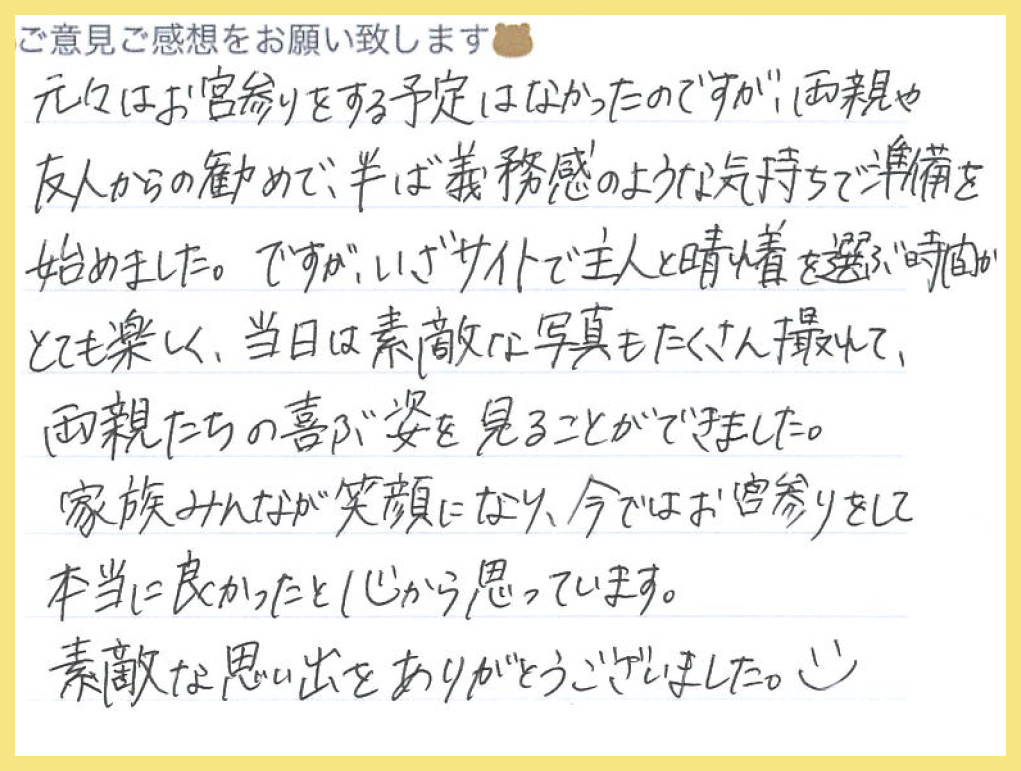 ご意見ご感想をお願い致します
元々はお宮参りをする予定はなかったのですが、両親や
友人からの勧めで、半ば義務感のような気持ちで準備を
始めました。ですが、いざサイトで主人と晴れ着を選ぶ時間が
とても楽しく、当日は素敵な写真もたくさん撮れて、
両親たちの喜ぶ姿を見ることができました。
家族みんなが笑顔になり、今ではお宮参りをして
本当に良かったと心から思っています。
素敵な思い出をありがとうございました。